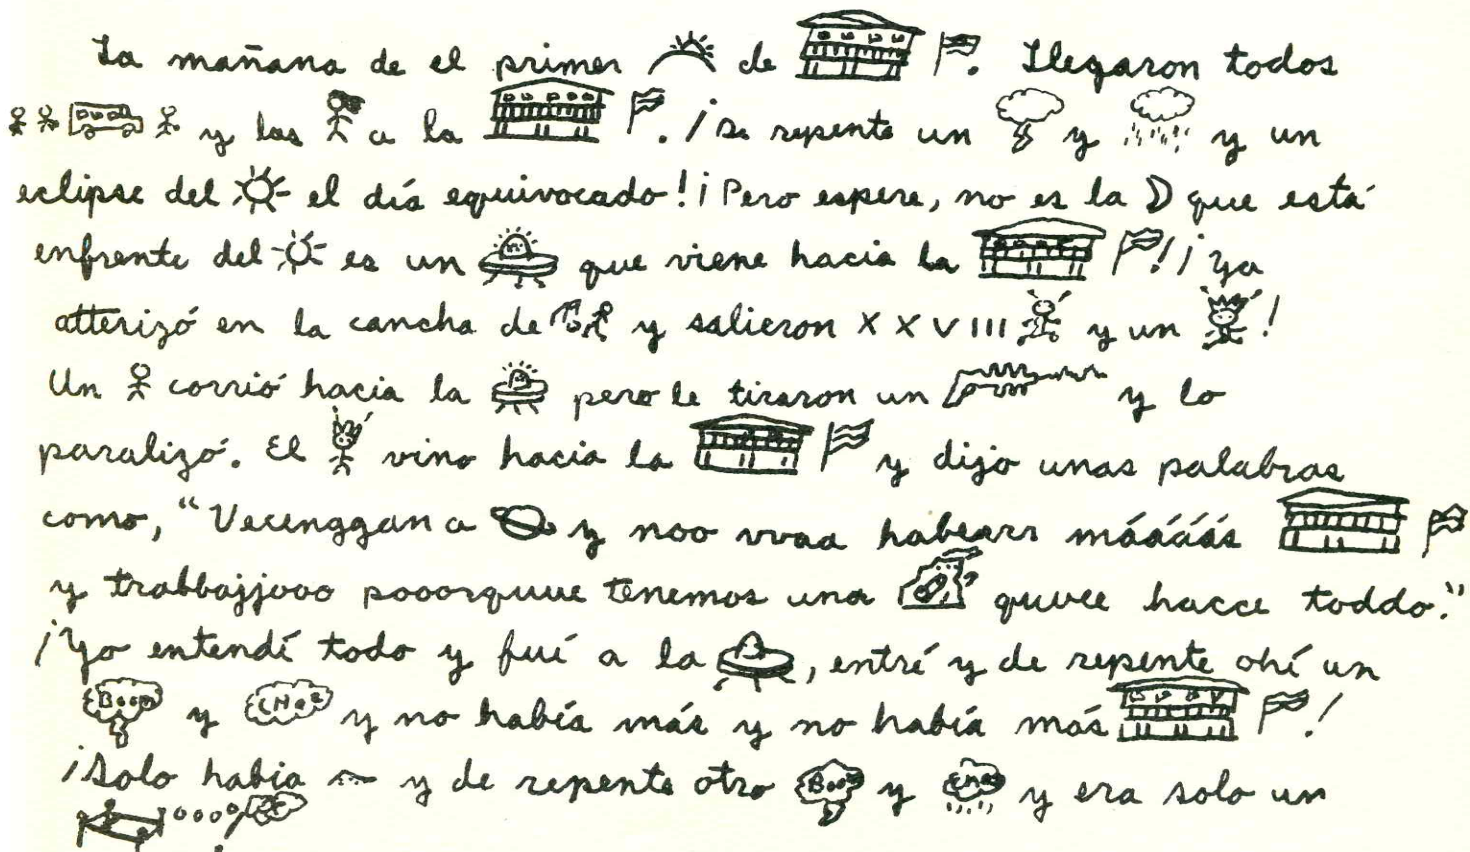 La mañana de el primer de . Llegaron todos
y las a la . ¡De repente un y y un
eclipse del el día equivocado! ¡Pero espere, no es la que está
enfrente del es un que viene hacia la ! ¡Ya
atterizó en la cancha de y salieron XXVIII y un !
Un corrió hacia la pero le tiraron un y lo
paralizó. El vino hacia la y dijo unas palabras
como, "Vecenggan a y noo vvaa habearr máááás
y trabbajjooo pooorquue tenemos una quvee hacce toddo."
¡Yo entendí todo y fuí a la , entré y de repente ohí un
Boom y y no había más y no había más !
¡Solo había y de repente otro y y era solo un
!